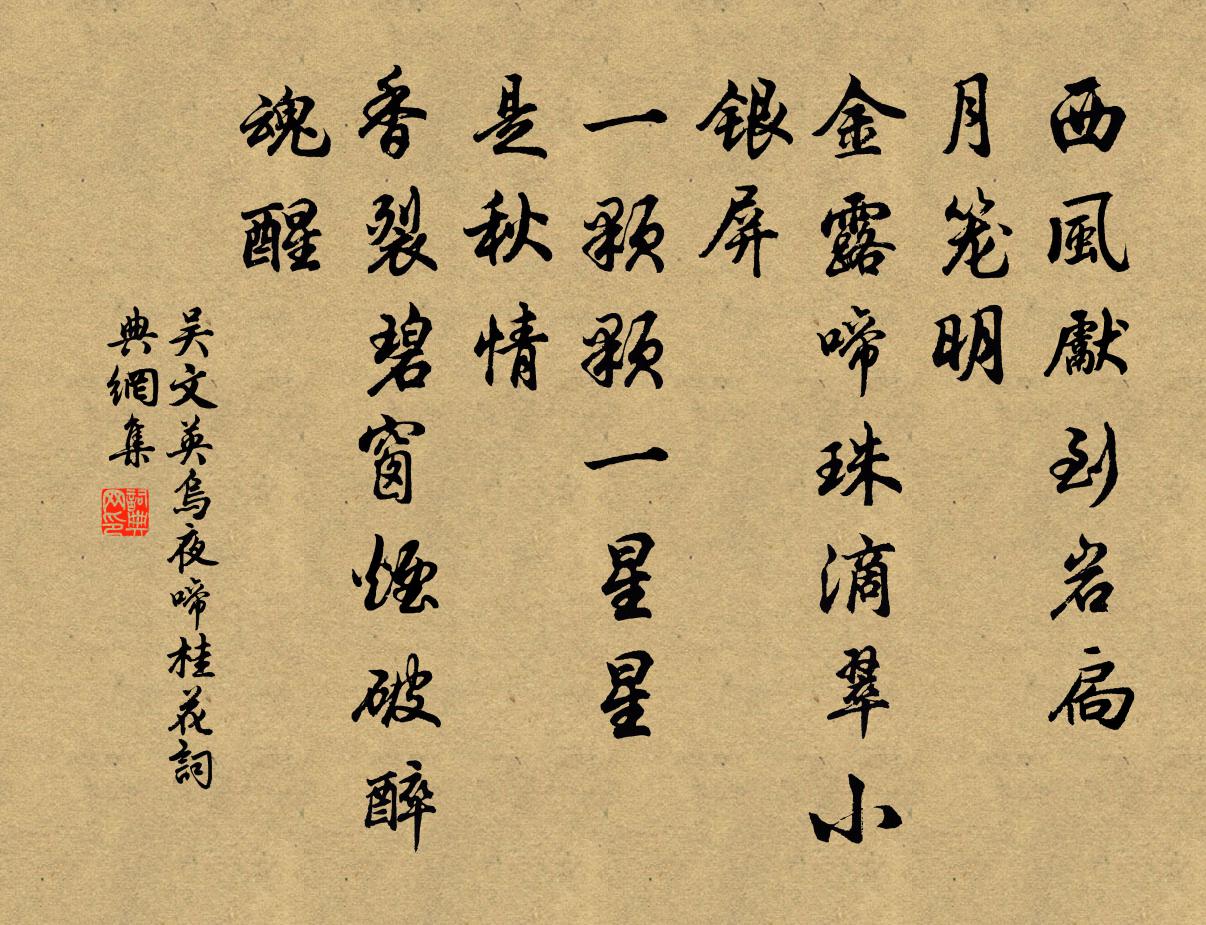 西風獻到岩扃
月笼明
金露啼珠滴翠小
銀屏
一顆顆一星星
是秋情
香裂碧窗煙破醉
魂醒
吴文英烏夜啼桂花詞
典網集
詞典
网印